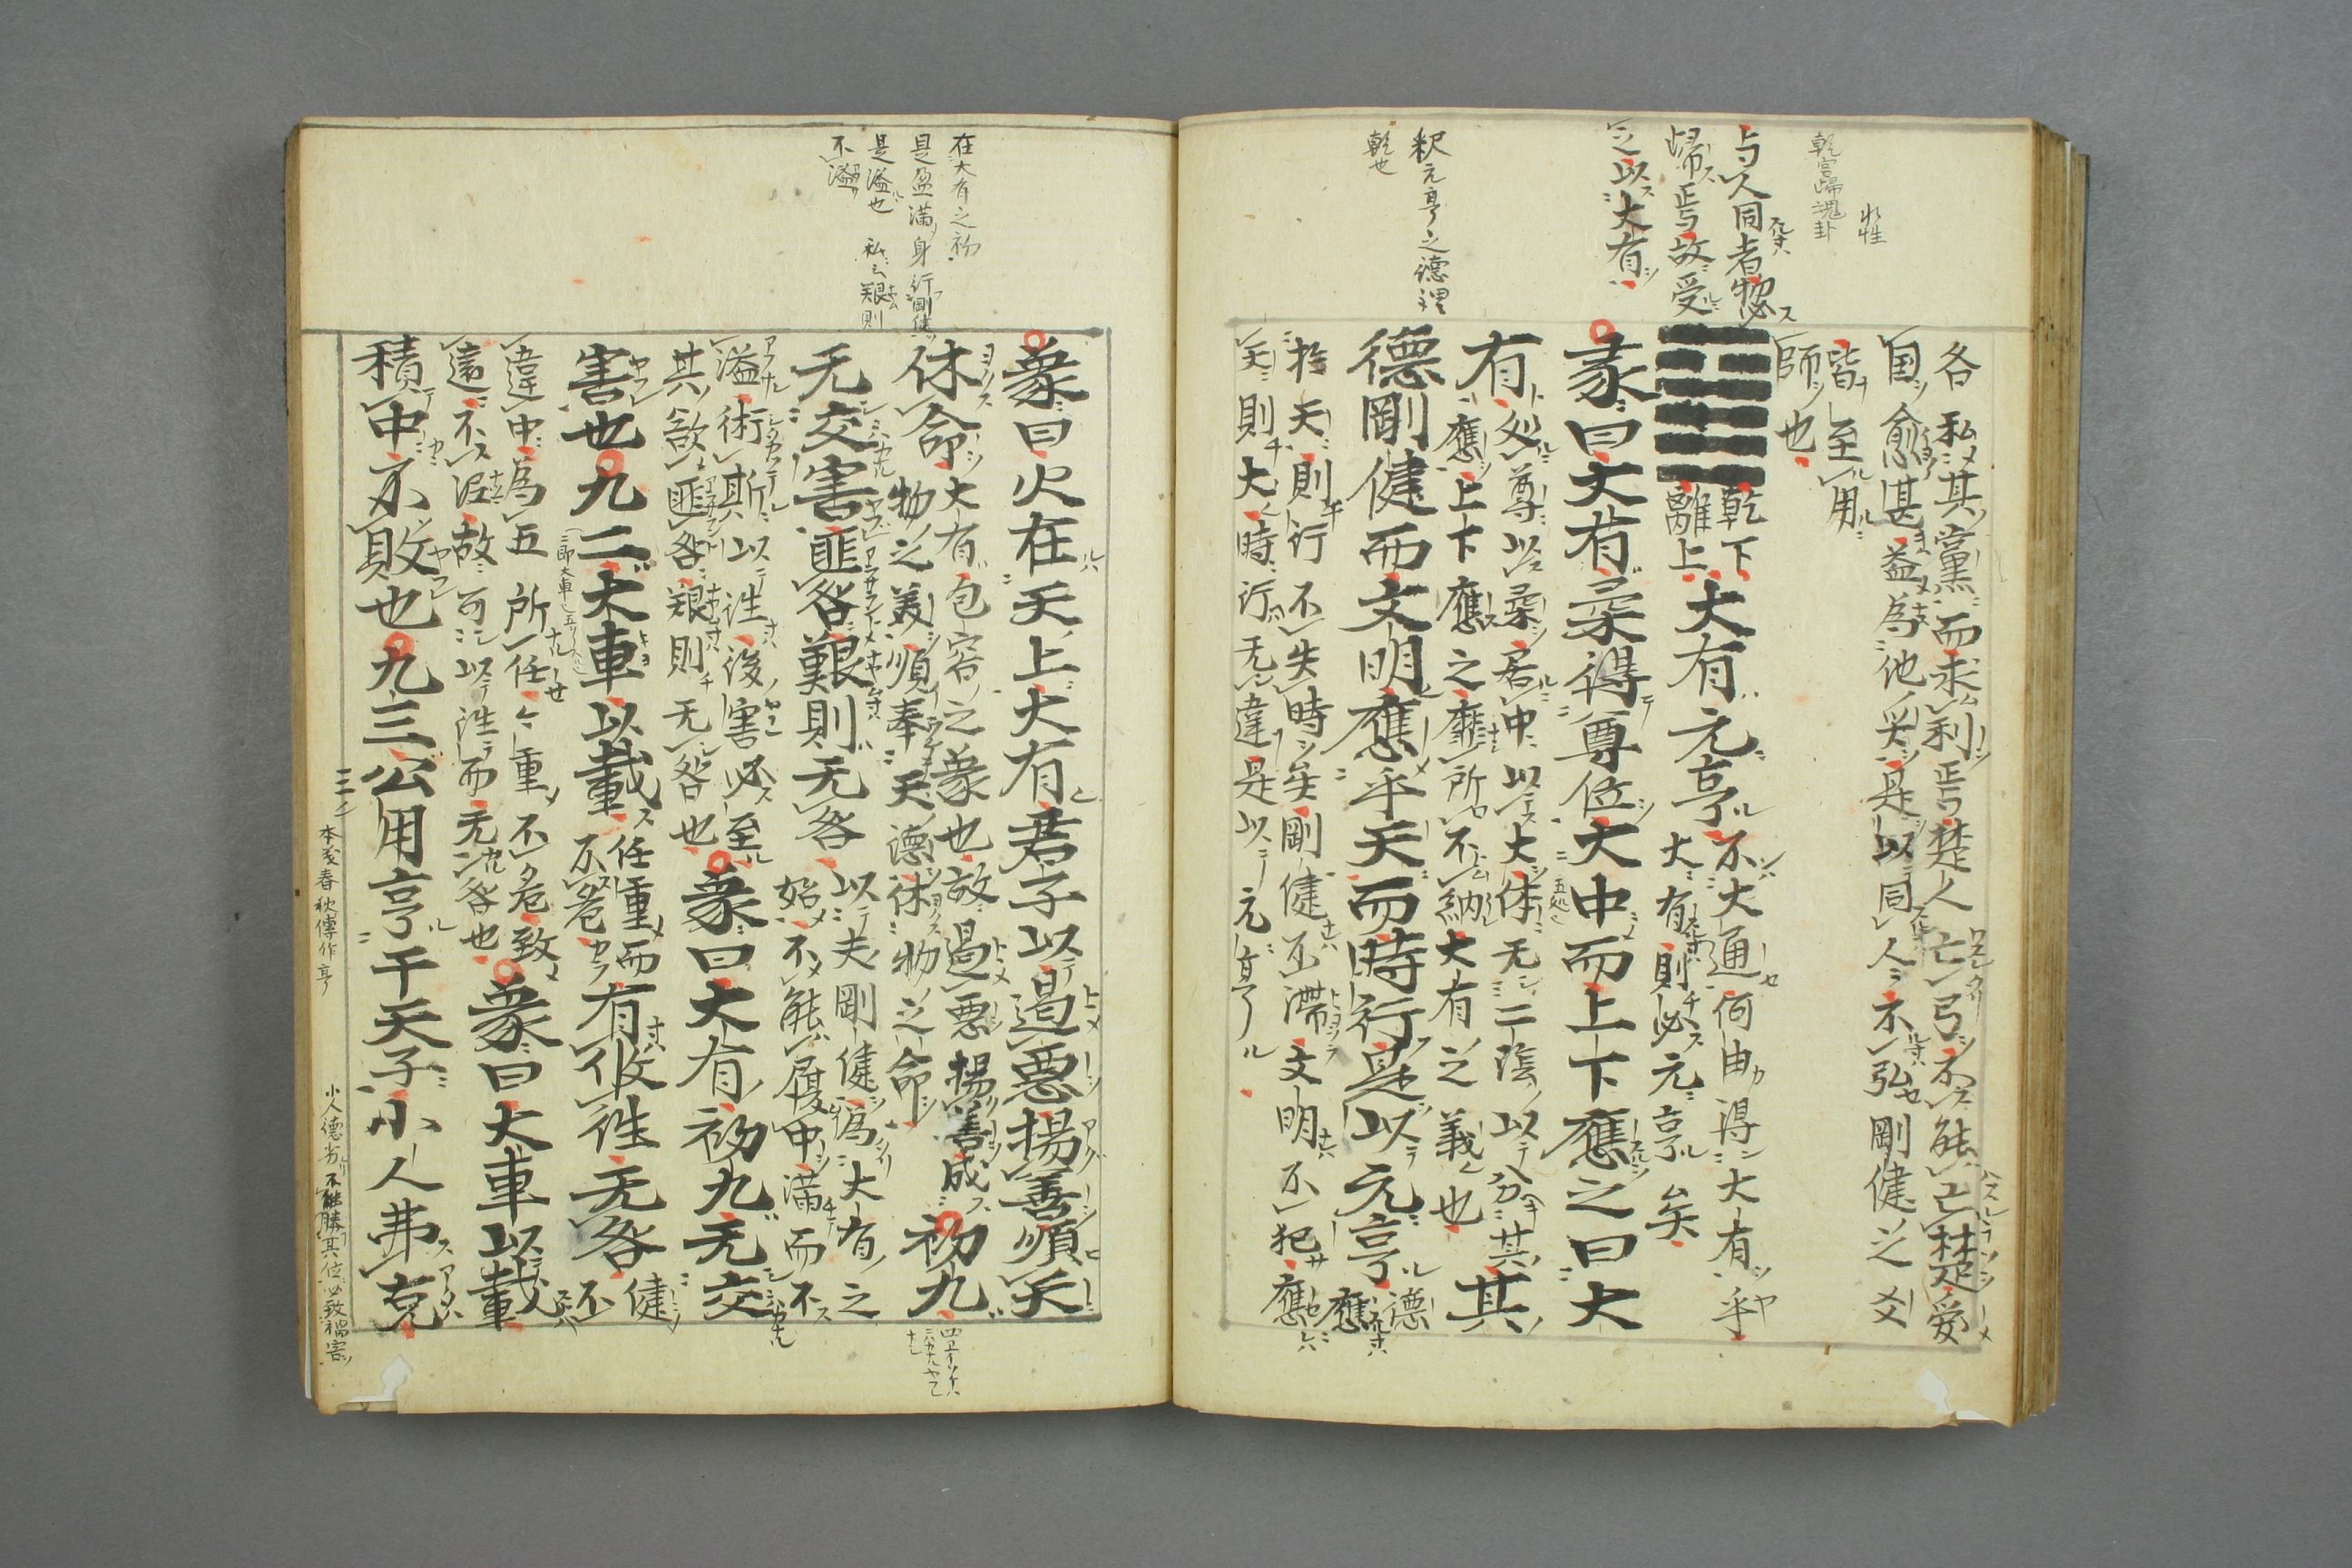 乾宮歸魂卦
与人同者物必
歸焉故受
之以大有
釈元亨之德裡
乾也
各私其黨而求利焉楚人亡弓不能亡楚愛
国愈甚益為他災是以同人不弘剛健之爻
皆至用
師也
乾下
離上
大有元亨
不大通何由得大有乎
大有則必元亨矣
彖曰大有柔得尊位大中而上下應之曰大
有
処尊以柔居中以大体无二陰以分其
應上下應之靡所不納大有之義也
其
德剛健而文明應乎天而時行是以元亨
德
應
於天則行不失時矣剛健不滯文明不犯應
天則大時行无違是以元亨
在大有之初
是盈滿身行剛健
是溢也
私云艱則
不溢
象曰火在天上大有君子以遏悪揚善順天
休命
大有包容之象也故遏悪揚善成
物之美順奉天德休物之命
初九
无交害匪咎艱則无咎
以夫剛健為大有之
始不能履中滿而不
溢術斯以往後害必至
其欲匪咎艱則无咎也
象曰大有初九无交
害也九二大車以載
任重而
不危
有攸往无咎
健不
違中為五所任任重不危致
遠不泥故可以往而无咎也
象曰大車以載
積中不敗也九三公用亨于天子小人弗克
本義春秋傳作享
小人德劣不能勝其位必致禍害